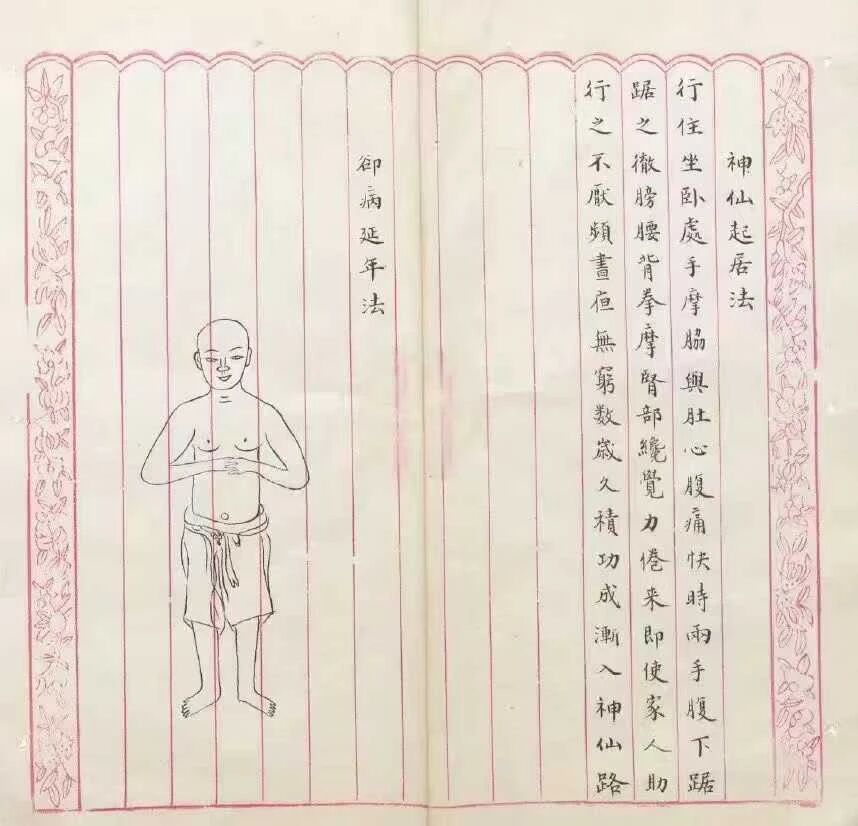 神仙起居法
行住坐卧處手摩脇與肚心腹痛快時兩手腹下踞
踞之徹膀腰背拳摩腎部纔覺力倦来即使家人助
行之不厭頻晝夜無窮数歲久積功成漸入神仙路
卻病延年法